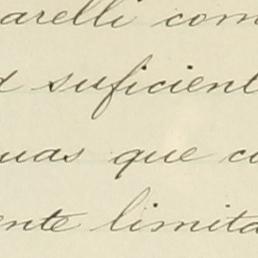 arelli com
d suficient
uas que c
ente limita